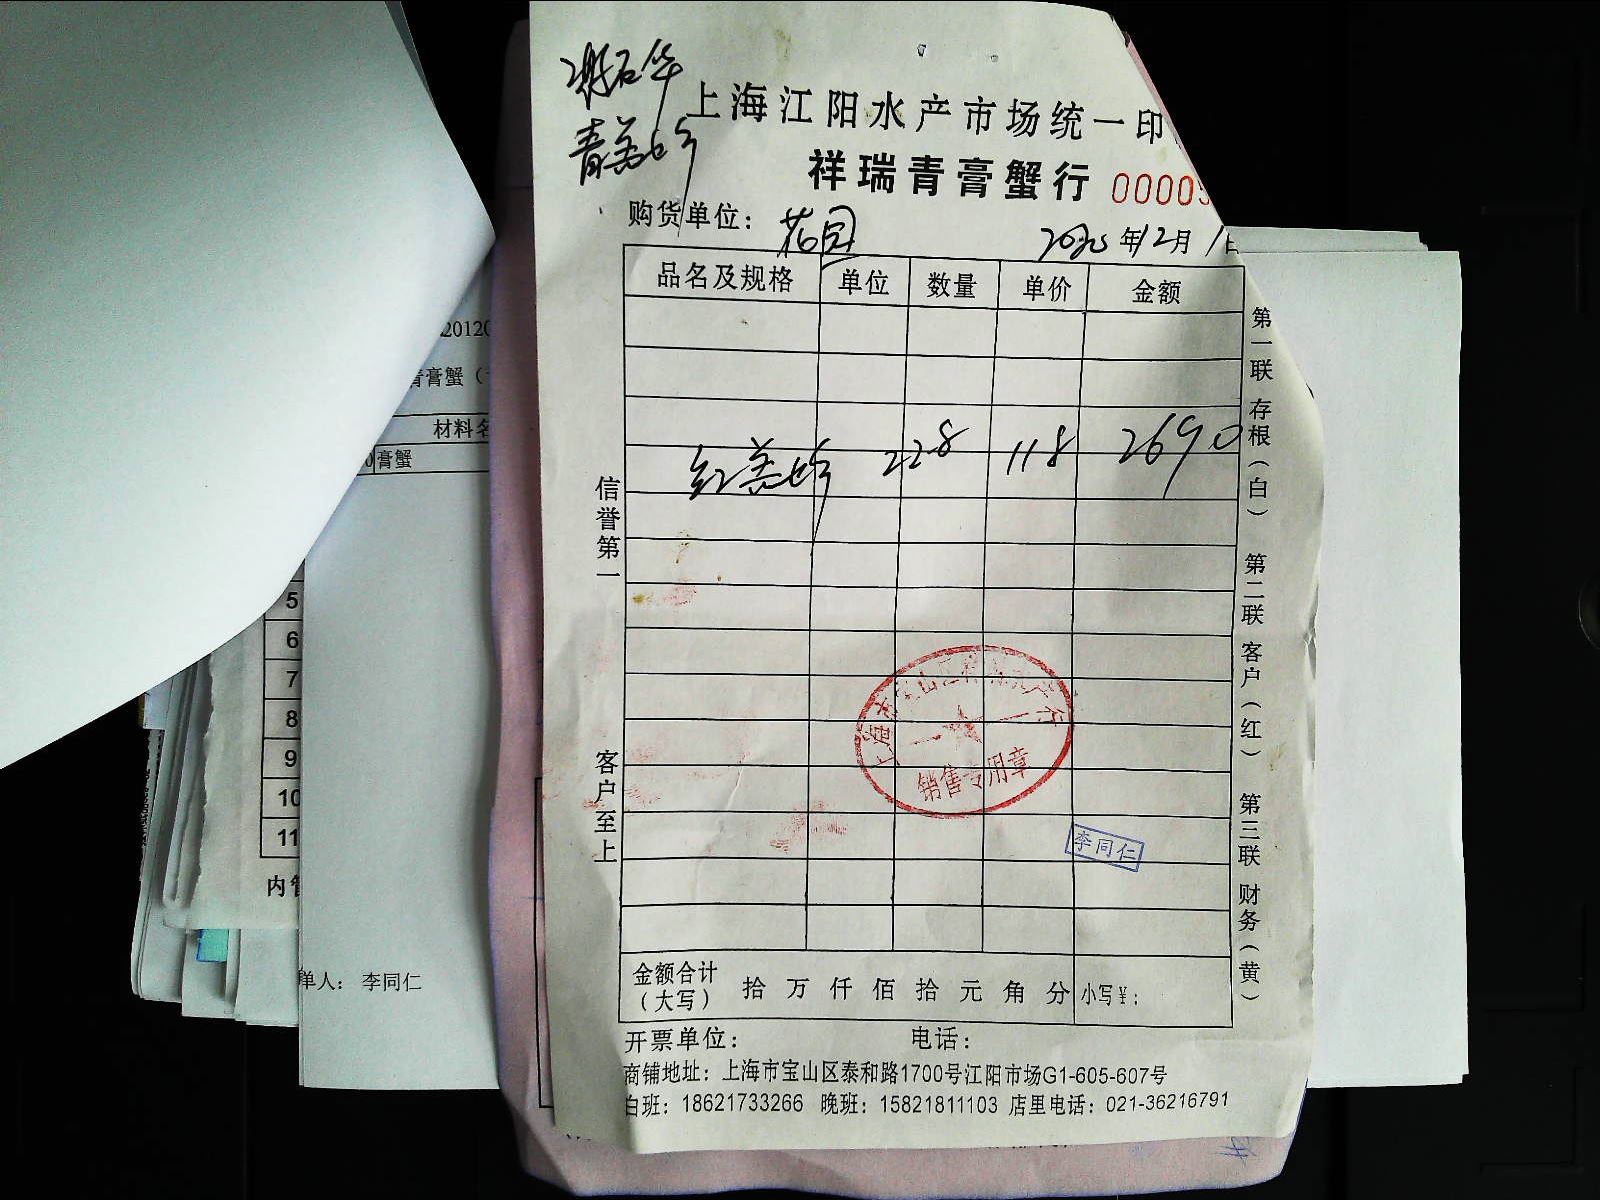 谢石华
青羔蚧
上海江阳水产市场统一印
祥瑞青膏蟹行 00005
购货单位: 花园 2020年12月1日
品名及规格 单位 数量 单价 金额
红羔蚧 228 118 2690
信誉第一
客户至上
第一联 存根(白) 第二联 客户(红) 第三联 财务(黄)
销售专用章
李同仁
金额合计(大写) 拾万仟佰拾元角分 小写¥:
开票单位: 电话:
商铺地址: 上海市宝山区泰和路1700号江阳市场G1-605-607号
白班: 18621733266 晚班: 15821811103 店里电话: 021-36216791
20120
青膏蟹(
材料名
0 膏蟹
5
6
7
8
9
10
11
内管
单人: 李同仁